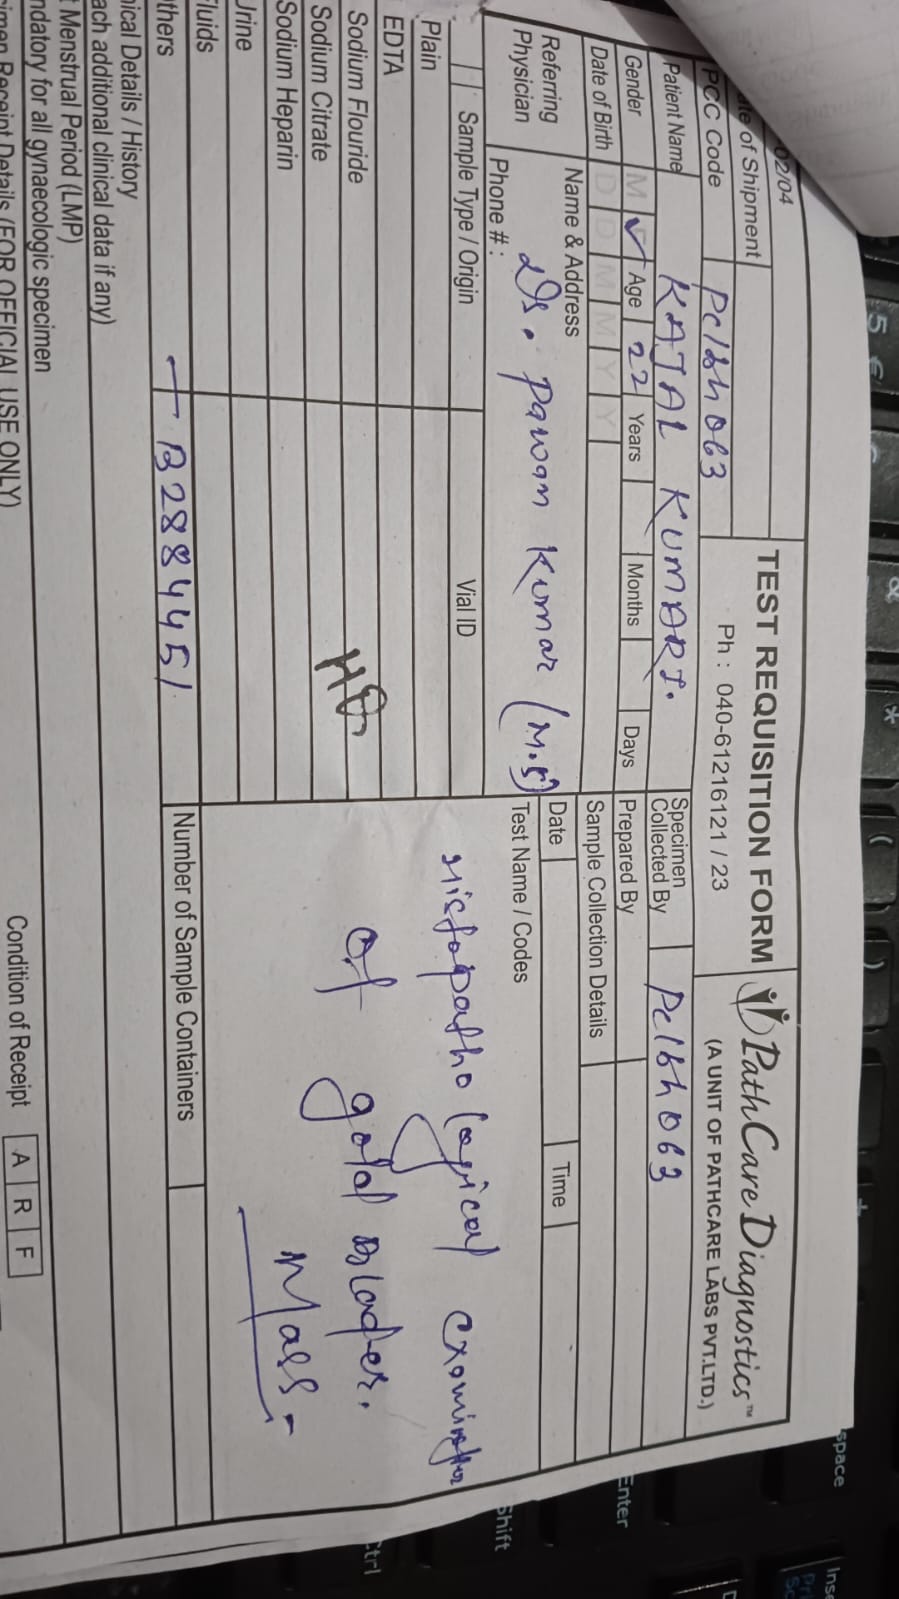 02/04
TEST REQUISITION FORM
Ph : 040-61216121 / 23
PathCare Diagnostics™
(A UNIT OF PATHCARE LABS PVT.LTD.)
ate of Shipment
PCC Code Pclbh063
Patient Name KAJAL KUMARI.
Specimen Collected By Pclbh063
Gender M ✓ Age 22 Years Months Days
Prepared By
Date of Birth D D M M Y Y
Sample Collection Details
Date Time
Referring Physician
Name & Address
Dr. Pawan Kumar (M.S)
Phone # :
Test Name / Codes
Histopathological examination
of gald Blader.
Mass -
Sample Type / Origin Vial ID
Plain
EDTA
Sodium Flouride
Sodium Citrate
Sodium Heparin
Urine
Fluids
thers B2884451
Number of Sample Containers
nical Details / History
ach additional clinical data if any)
t Menstrual Period (LMP)
ndatory for all gynaecologic specimen
imen Receipt Details (FOR OFFICIAL USE ONLY)
Condition of Receipt A R F
5 €
&
*
(
)
+
space
Enter
Shift
Ctrl
Ins